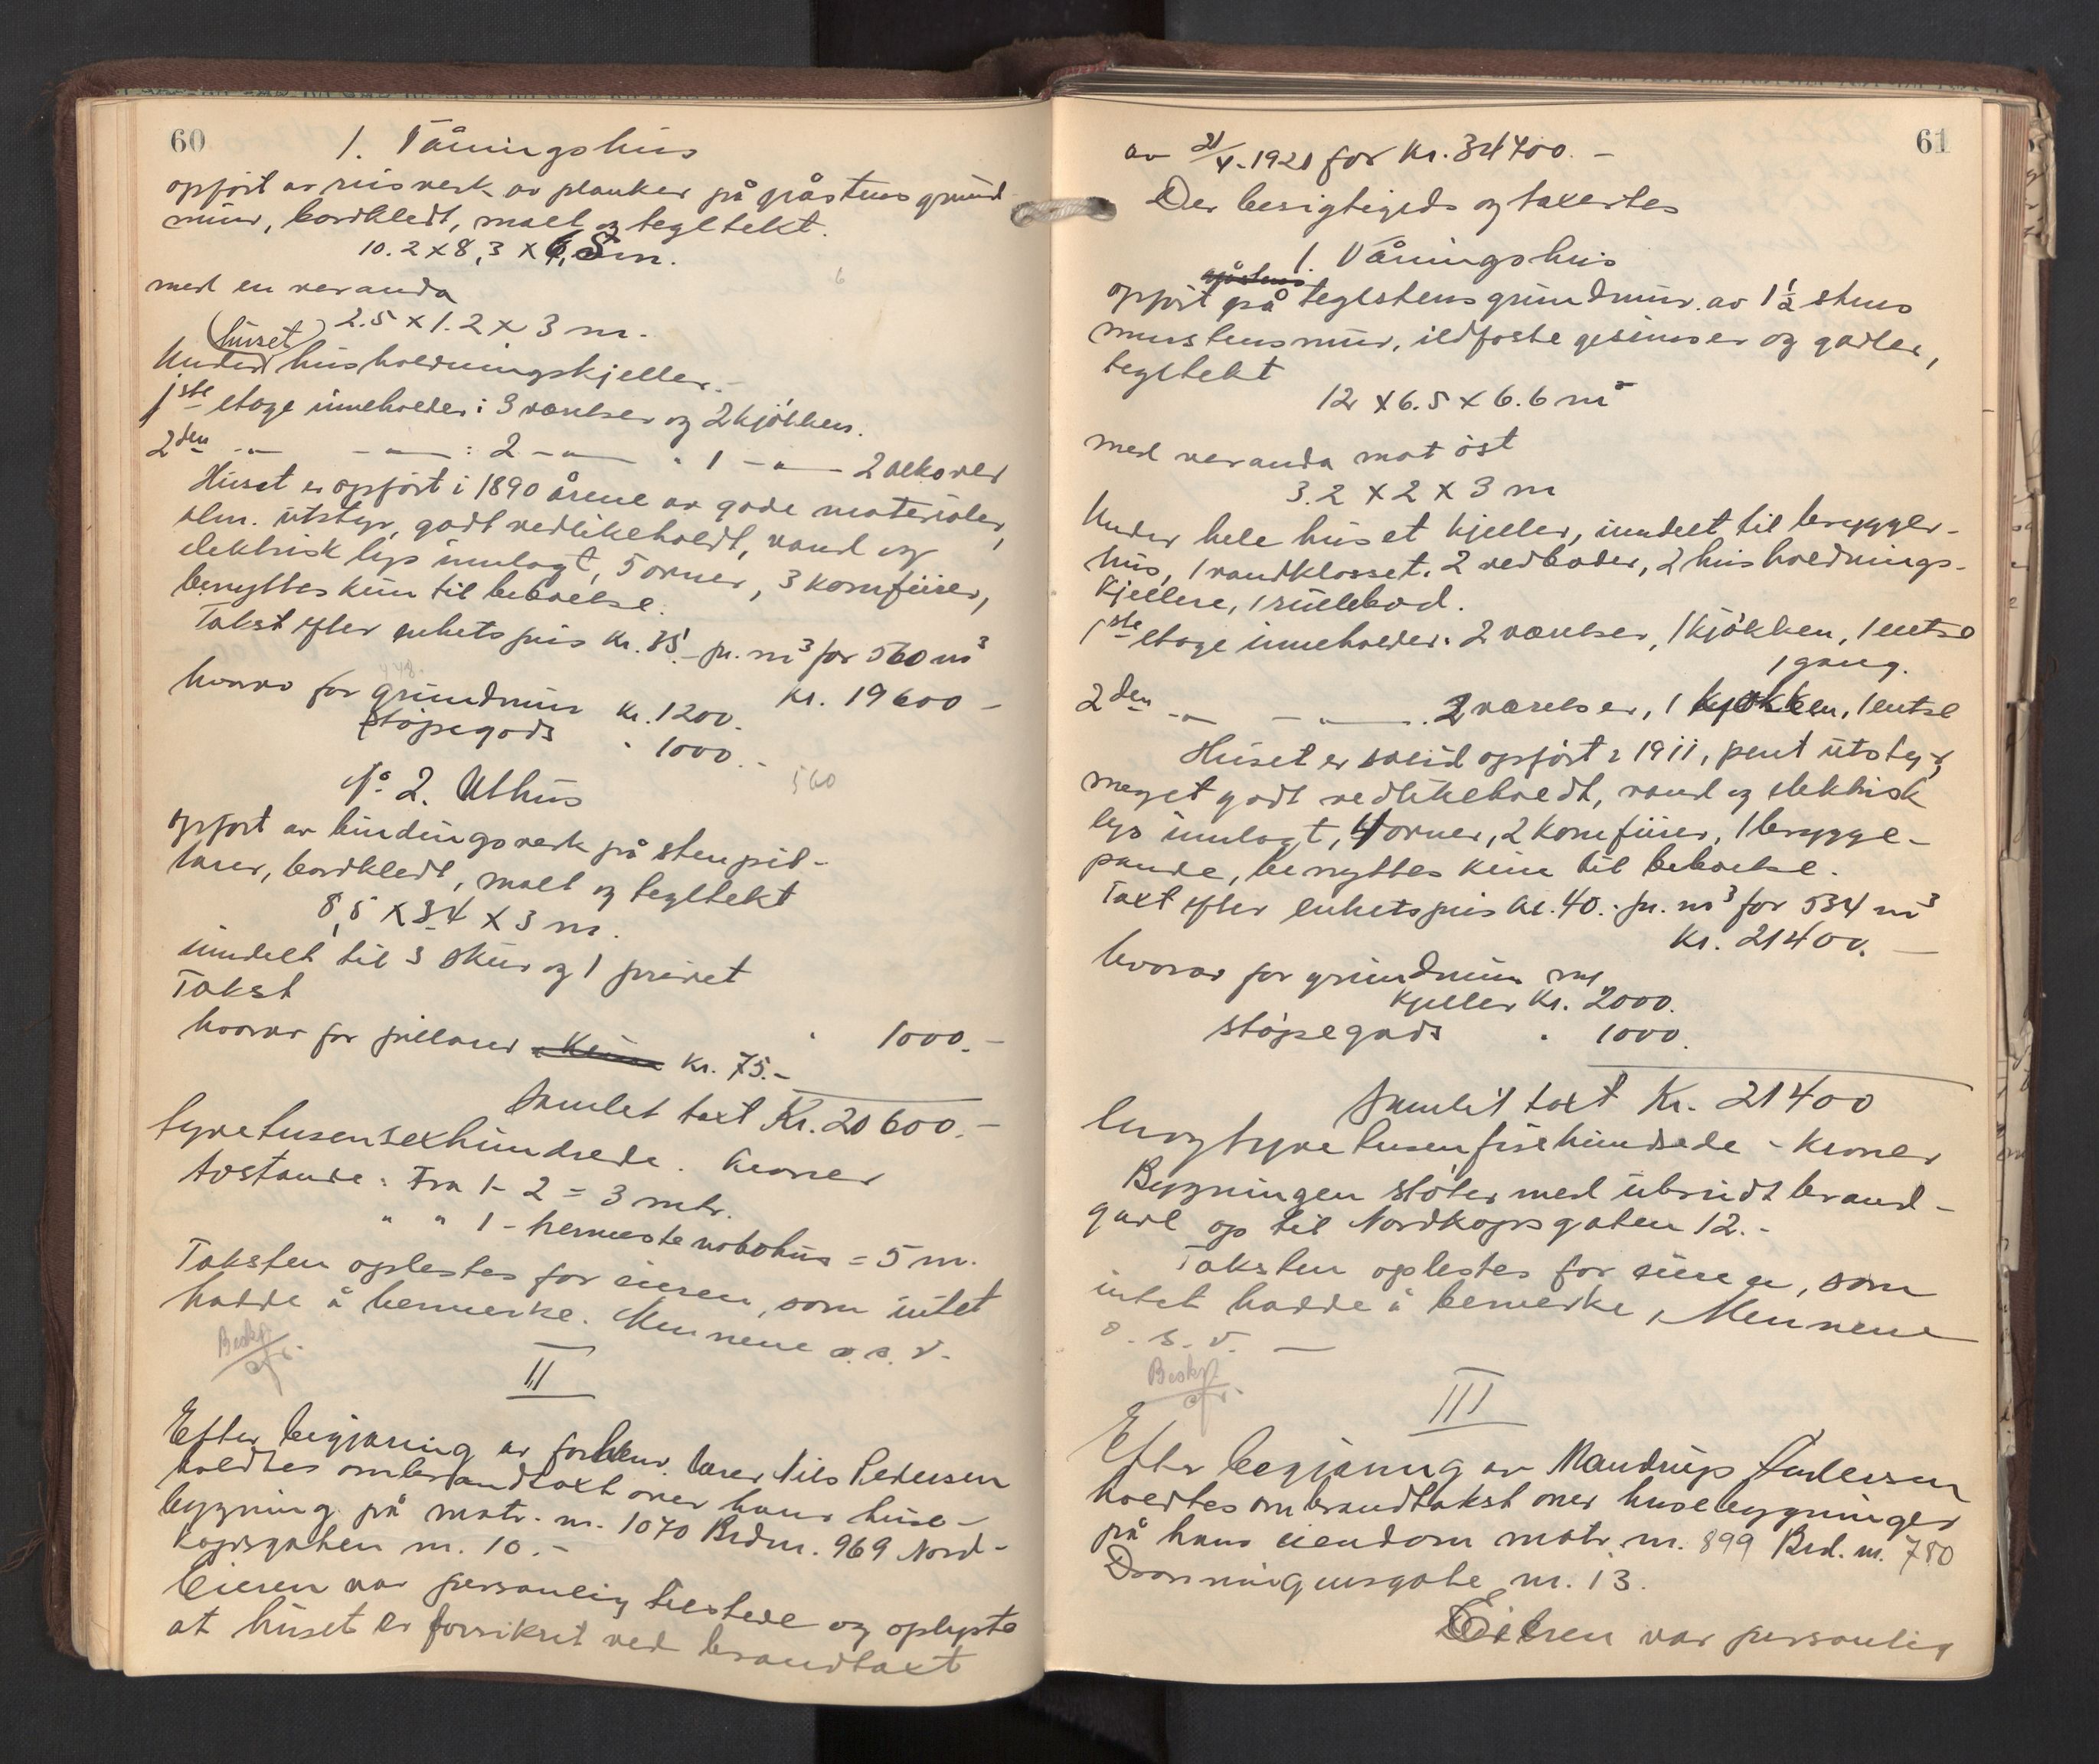 60
1. Våningshus
opført av reisverk av planker på gråstens grund
mur, bordkledt, malt og tegltekt.
10.2 x 8,3 x 6,5 m.
6
med en veranda
2.5 x 1.2 x 3 m.
(huset)
Under husholdningskjeller.
1ste etage inneholder: 3 værelser og 2 kjøkken.
2den -"- -"- : 2 -"- " 1 -"- 2 alkover
Huset er opført i 1890 årene av gode materialer,
alm. utstyr, godt vedlikeholdt, vand og
elektrisk lys innlagt, 5 ovner, 3 komfurer,
benyttes kun til beboelse.
Takst efter enhetspris kr. 35.- pr. m³ for 560 m³
kr. 19600 -
448.
hvorav for grundmur kr. 1200.
støpegods " 1000.-
560
No 2. Uthus
opført av bindingsverk på stenpil-
larer, bordkledt, malt og tegltekt
8,5 x 3.4 x 3 m.
inndelt til 3 skur og 1 privet
Takst " 1000.-
hvorav for pillarer kr. 75.-
Samlet taxt Kr. 20600.-
tyvetusensexhundrede. kroner
Avstande: Fra 1 - 2 = 3 mtr.
" " 1 - nermeste nabohus = 5 m.
Taksten oplestes for eieren, som intet
hadde å bemerke. Mennene o.s.v.
Beskr.
afr.
II
Efter begjæring av forhenv. lærer Nils Pedersen
holdtes ombrandtaxt over hans huse-
bygning på matr. nr. 1070 Brdnr. 969 Nord-
kapsgaten nr. 10.-
Eieren var personlig tilstede og oplyste
at huset er forsikret ved brandtaxt
61
av 21/4-1921 for kr. 34400.-
Der besigtigeds og taxertes
1. Våningshus
gråstens
opført på teglstens grundmur av 1½ stens
murstensmur, ildfaste gesimser og gavler,
tegltekt
12 x 6.5 x 6.6 m
med veranda mot øst
3.2 x 2 x 3 m
Under hele huset kjeller, inndelt til brygger-
hus, 1 vandklosset, 2 vedboder, 2 husholdnings-
kjellere, 1 rullebod.
1ste etage inneholder: 2 værelser, 1 kjøkken, 1 entre
1 gang.
2den -"- -"- 2 værelser, 1 kjøkken, 1 entre
Huset er solid opført i 1911, pent utstyr,
meget godt vedlikeholdt, vand og elektrisk
lys innlagt, 4 ovner, 2 komfurer, 1 brygge-
pande, benyttes kun til beboelse.
Taxt efter enhetspris kr. 40.- pr. m³ for 534 m³
kr. 21400.-
hvorav for grundmur med
kjeller Kr. 2000.
støpegods " 1000.
Samlet taxt Kr. 21400
enogtyvetusenfirehundrede - kroner
Bygningen støter med ubrudt brand-
gavl op til Nordkapsgaten 12.-
Taksten oplestes for eieren, som
intet hadde å bemerke, Mennene
o.s.v. -
Beskr.
afr.
III
Efter begjæring av Mandrup Andersen
holdtes ombrandtakst over husebygninger
på hans eiendom matr. nr. 899 Brd. nr. 780
Dronningensgate nr. 13.
Eieren var personlig